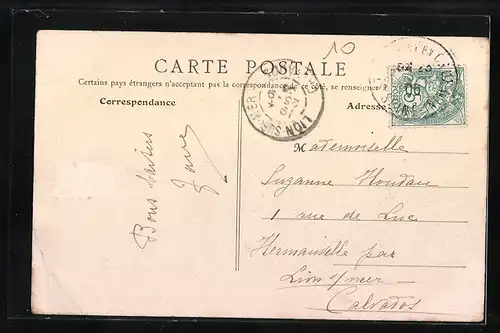 10
CARTE POSTALE
Certains pays étrangers n'acceptent pas la correspondance de ce côté, se renseigner à
Correspondance
Adresse
LION-SUR-MER
Mademoiselle
Suzanne
1 rue de Luc
Hermanville par
Lion s/mer
Calvados
Bons baisers